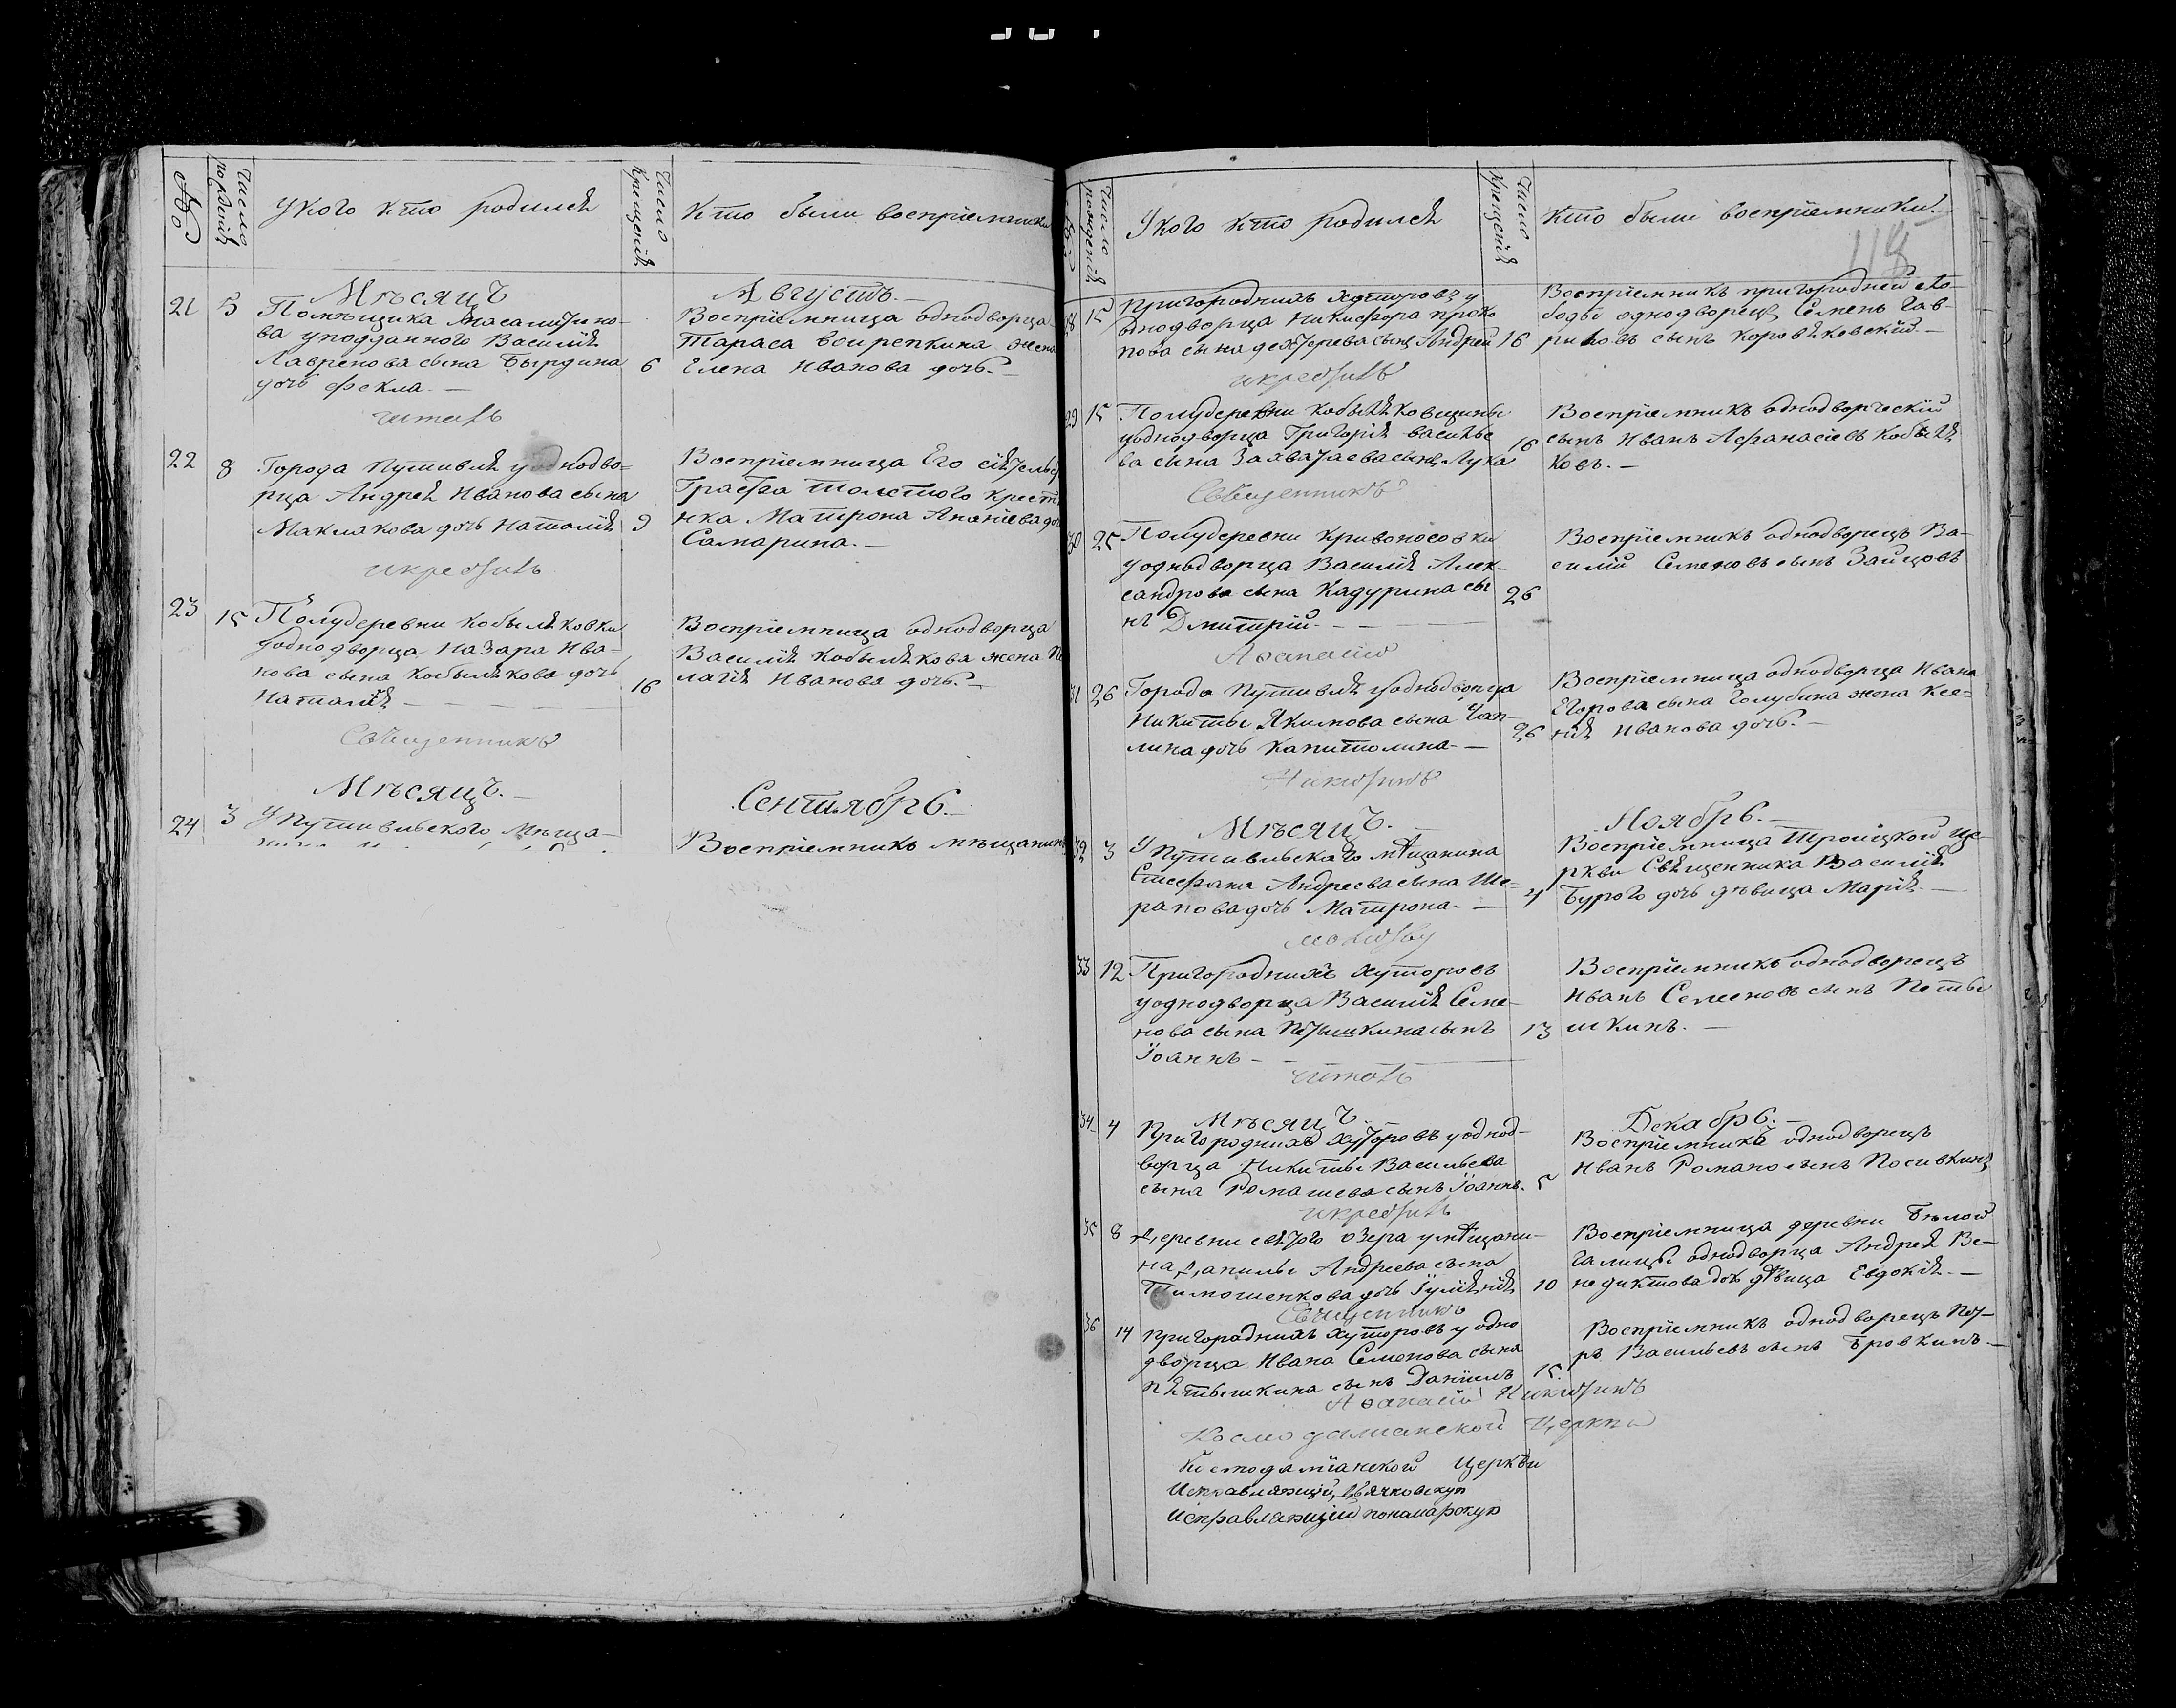 №
Число рожденія
Укого кто родился
Число крещенія
Кто были воспріемники
Мѣсяцъ
Августъ.—
21 5 Помѣщика
ва уподданного Василія
Лавренова сына Бырдина 6
дочь Фекла.—
Воспріемница однодворца
Тараса жена
Елена Иванова дочь.—
читалъ
22 8 Города Путивля уоднодво=
рца Андрея Иванова сына
Маклакова дочь Наталія 9
Воспріемница Его
Графа Толстого крест
нка Матрона Ананіева до
Самарина.—
23 15 Полудеревни Кобыляковки
уоднодворца Назара Ива-
нова сына Кобылякова дочь 16
Наталія —
Воспріемница однодворца
Василія Кобылякова жена Пе
лагія Иванова дочь.—
Священникъ
Мѣсяцъ.—
Сентябрь.—
24 3 У Путивльского мѣща-
Воспріемникъ мѣщанинъ
118
Число рожденія
Укого кто родился
Число крещенія
Кто были воспріемники.
28 15 Пригородныхъ хуторовъ у
однодворца Никифора Проко
пова сына Дехтерева сынъ Андрей 16
Воспріемникъ пригородней сло-
боды однодворецъ Семенъ Гав-
риловъ сынъ Коровяковскій.—
29 15 Полудеревни Кобыляковщины
уоднодворца Григорія Василье
ва сына Захватаева сынъ Лука 16
Воспріемникъ однодворческій
сынъ Иванъ Афанасіевъ Кобыля
ковъ.—
Священникъ
30 25 Полудеревни Кривоносовки
уоднодворца Василія Алек-
сандрова сына Кадурина сы 26
нъ Дмитрій.—
Воспріемникъ однодворецъ Ва-
силій Семеновъ сынъ Зайцовъ
Аѳанасій
31 26 Города Путивля уоднодворца
Никиты Якимова сына Чап-
лина дочь Капитолина.— 26
Воспріемница однодворца Ивана
Егорова сына Голубина жена Ксе=
нія Иванова дочь.—
Мѣсяцъ.
Ноябрь.—
32 3 У Путивльскаго мѣщанина
Стефана Андреева сына Ше-
рапова дочь Матрона.— 4
Воспріемница Троицкой це-
ркви Священника Василія
Бурого дочь дѣвица Марія.—
33 12 Пригородныхъ хуторовъ
уоднодворца Василія Семе-
нова сына Петышкина сынъ 13
Іоаннъ —
Воспріемникъ однодворецъ
Иванъ Семеновъ сынъ Петы
шкинъ.—
читалъ
Мѣсяцъ.
Декабрь.—
34 4 Пригородныхъ хуторовъ уоднод-
ворца Никиты Васильева
сына Ромашева сынъ Іоаннъ. 5
Воспріемникъ однодворецъ
Иванъ Романо сынъ Посивкинъ
35 8 Деревни святого озера умѣщани-
на Данилы Андреева сына
Тимошенкова дочь Іуліянія 10
Воспріемница деревни Бѣлой
Галицы однодворца Андрея Ве-
недиктова дочь дѣвица Евдокія.—
Священникъ
36 14 Пригородныхъ хуторовъ у одно
дворца Ивана Семенова сына
Пятышкина сынъ Даніилъ 15
Воспріемникъ однодворецъ Пет-
ръ Васильевъ сынъ Бровкинъ.—
Аѳанасій
Космодаміанской Церкви
Космодаміанской Церкви
Исправляющій дьячковскую
Исправляющій понамарскую